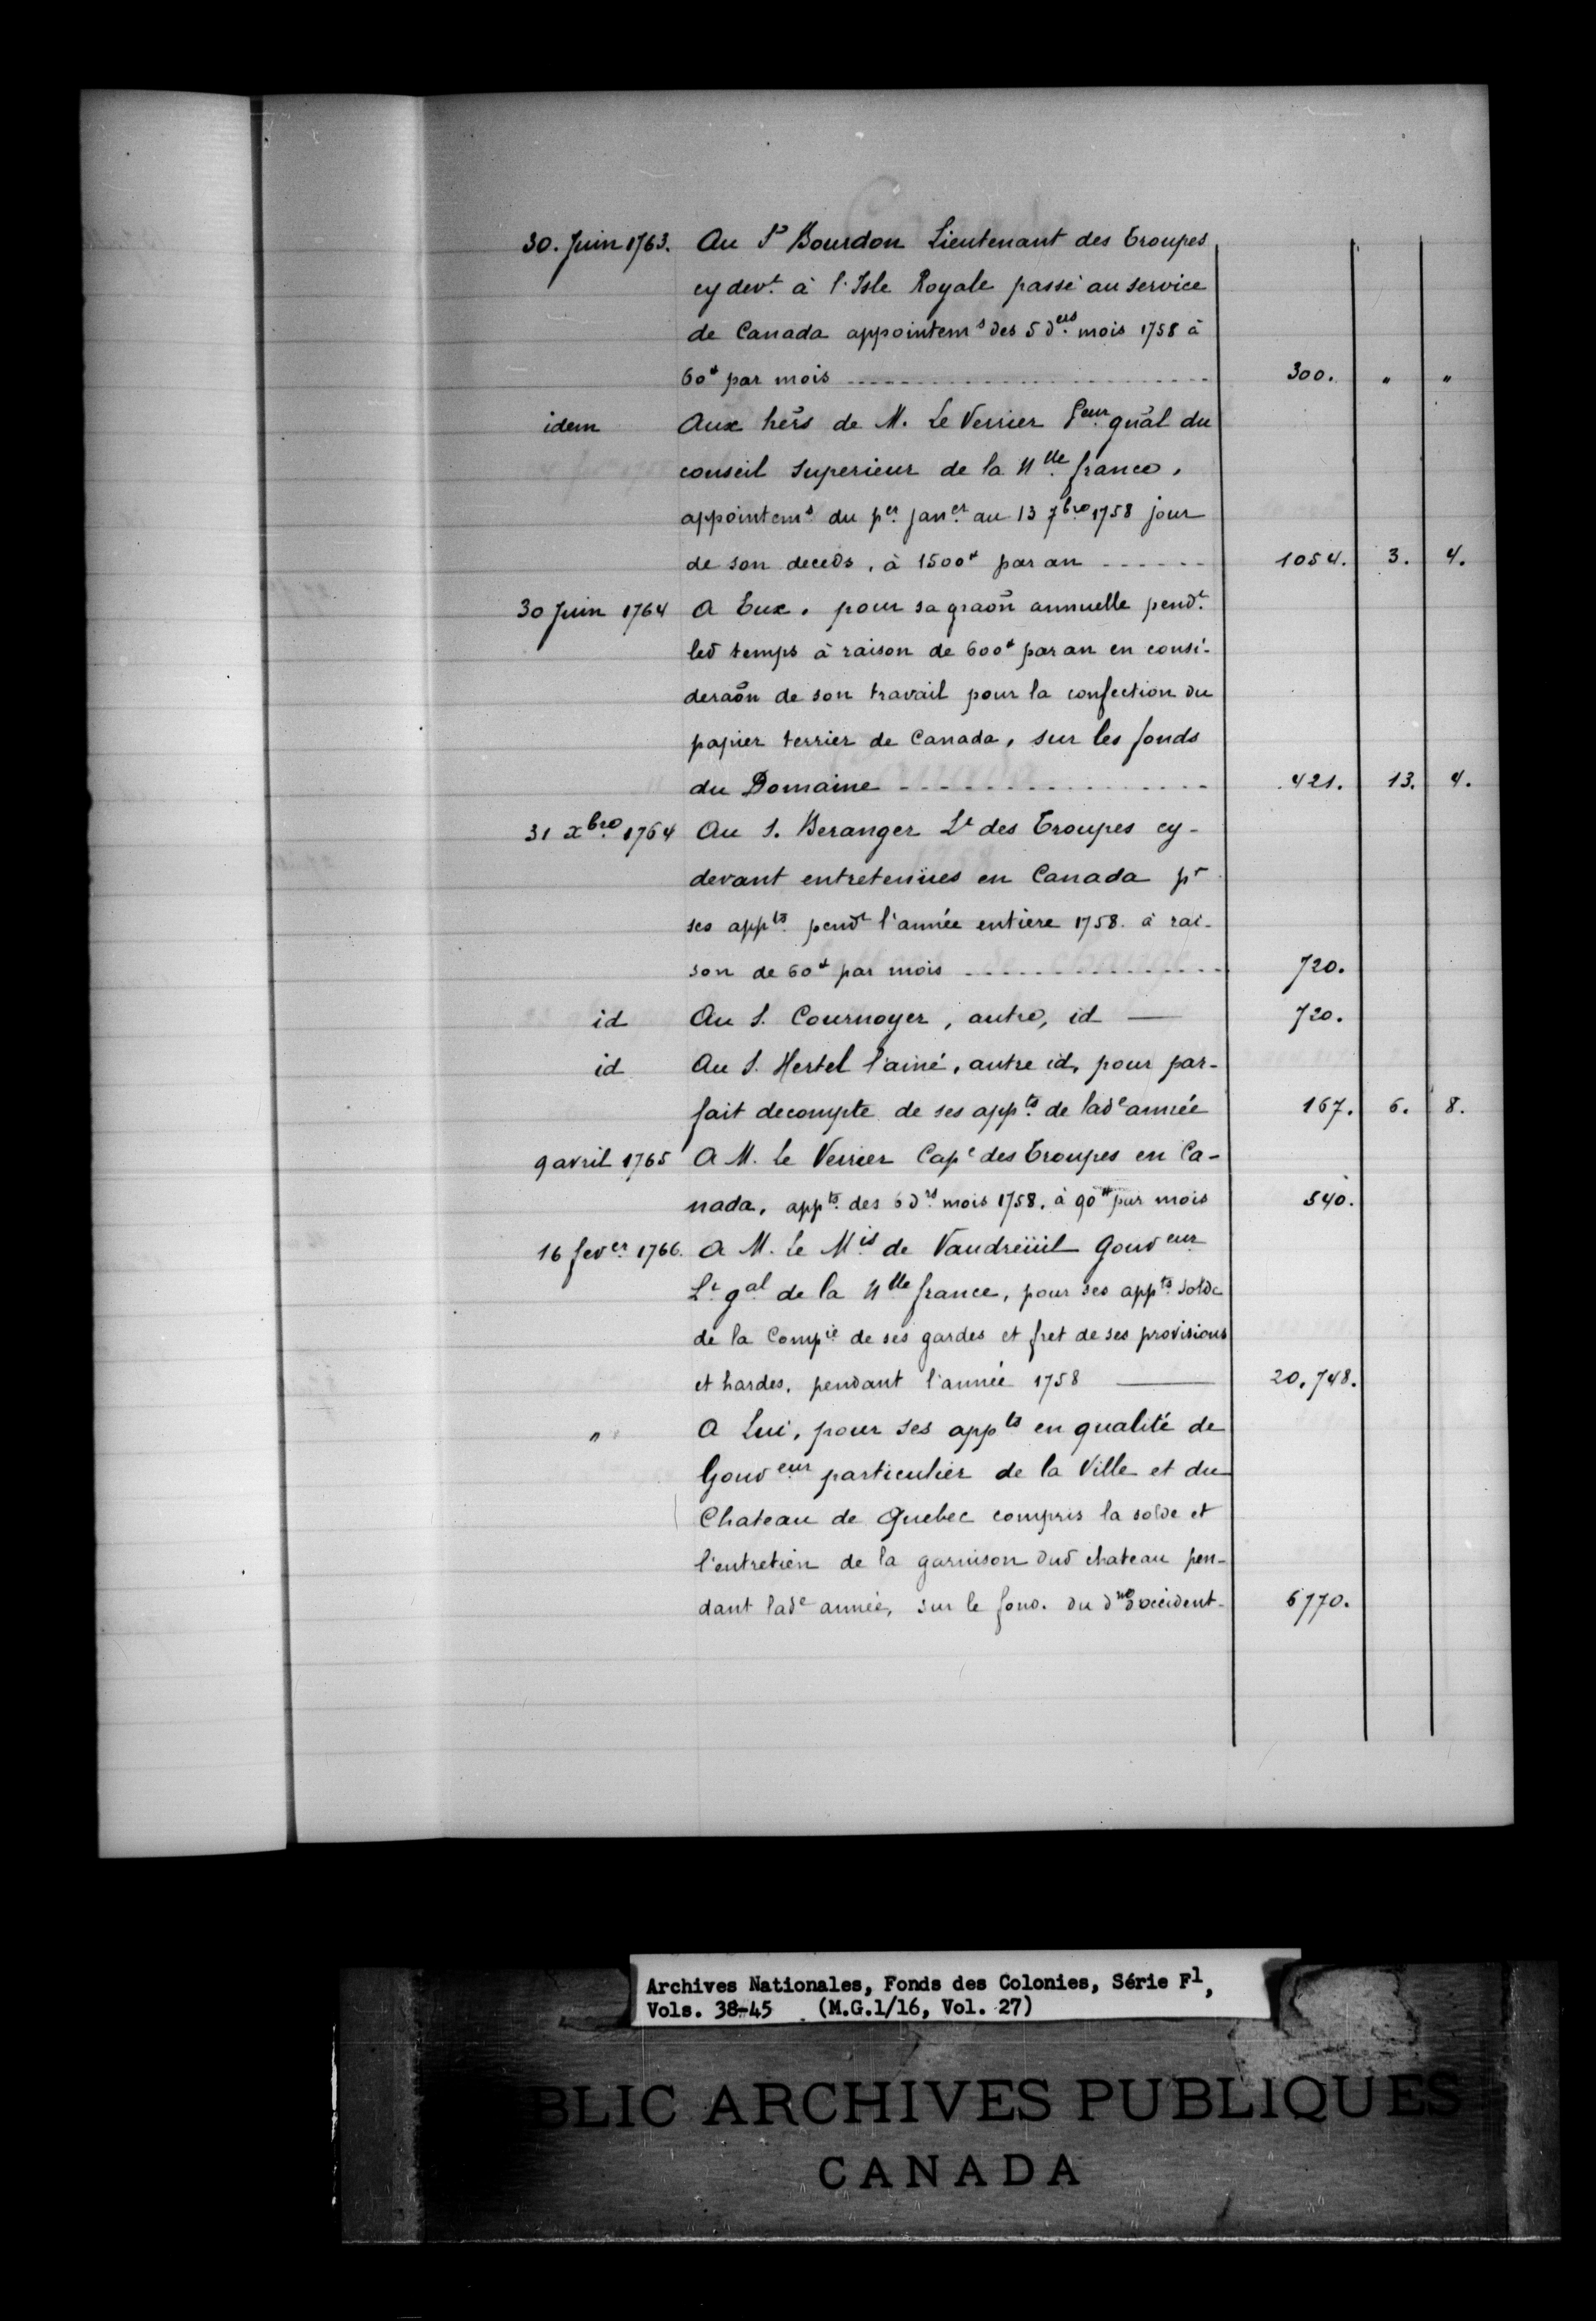 30. Juin 1763. Au S.r Bourdon Lieutenant des Troupes
cy devt. à l'Isle Royale passé au service
de Canada appointems des 5 ders. mois 1758 à
60# par mois 300. " "
idem Aux hérs de M. Le Verrier Peur. gnāl du
conseil Superieur de la Nlle. france,
appointems. du per. janer. au 13 7bre. 1758 jour
de son deceds, à 1500# par an 1054. 3. 4.
30 Juin 1764 A Eux, pour sa graōn annuelle pendt.
led temps à raison de 600# par an en consi-
deraōn de son travail pour la confection du
papier terrier de Canada, sur les fonds
du Domaine 421. 13. 4.
31 xbre. 1764 Au S. Beranger Lt des Troupes cy-
devant entretenües en Canada pr
ses appts. pendt l'année entière 1758. à rai-
son de 60# par mois 720.
id Au S. Cournoyer, autre, id — 720.
id Au S. Hertel l'ainé, autre id, pour par-
fait decompte de ses appts. de lade année 167. 6. 8.
9 avril 1765 A M. Le Verrier Cape des Troupes en Ca-
nada, appts. des 6 drs. mois 1758. à 90# par mois 540.
16 fever. 1766. A M. Le Mis de Vaudreüil Gouveur.
Lt. gal de la Nlle france, pour ses appts. solde
de la Compie de ses gardes et fret de ses provisions
et hardes, pendant l'année 1758 — 20,748.
" A Lui, pour ses appts en qualité de
Gouveur. particulier de la Ville et du
Chateau de Quebec compris la solde et
l'entretien de la garnison dud chateau pen-
dant lade année, sur le fond. du dne d'occident- 6770.
Archives Nationales, Fonds des Colonies, Série F1,
Vols. 38-45 (M.G.1/16, Vol. 27)
BLIC ARCHIVES PUBLIQUES
CANADA